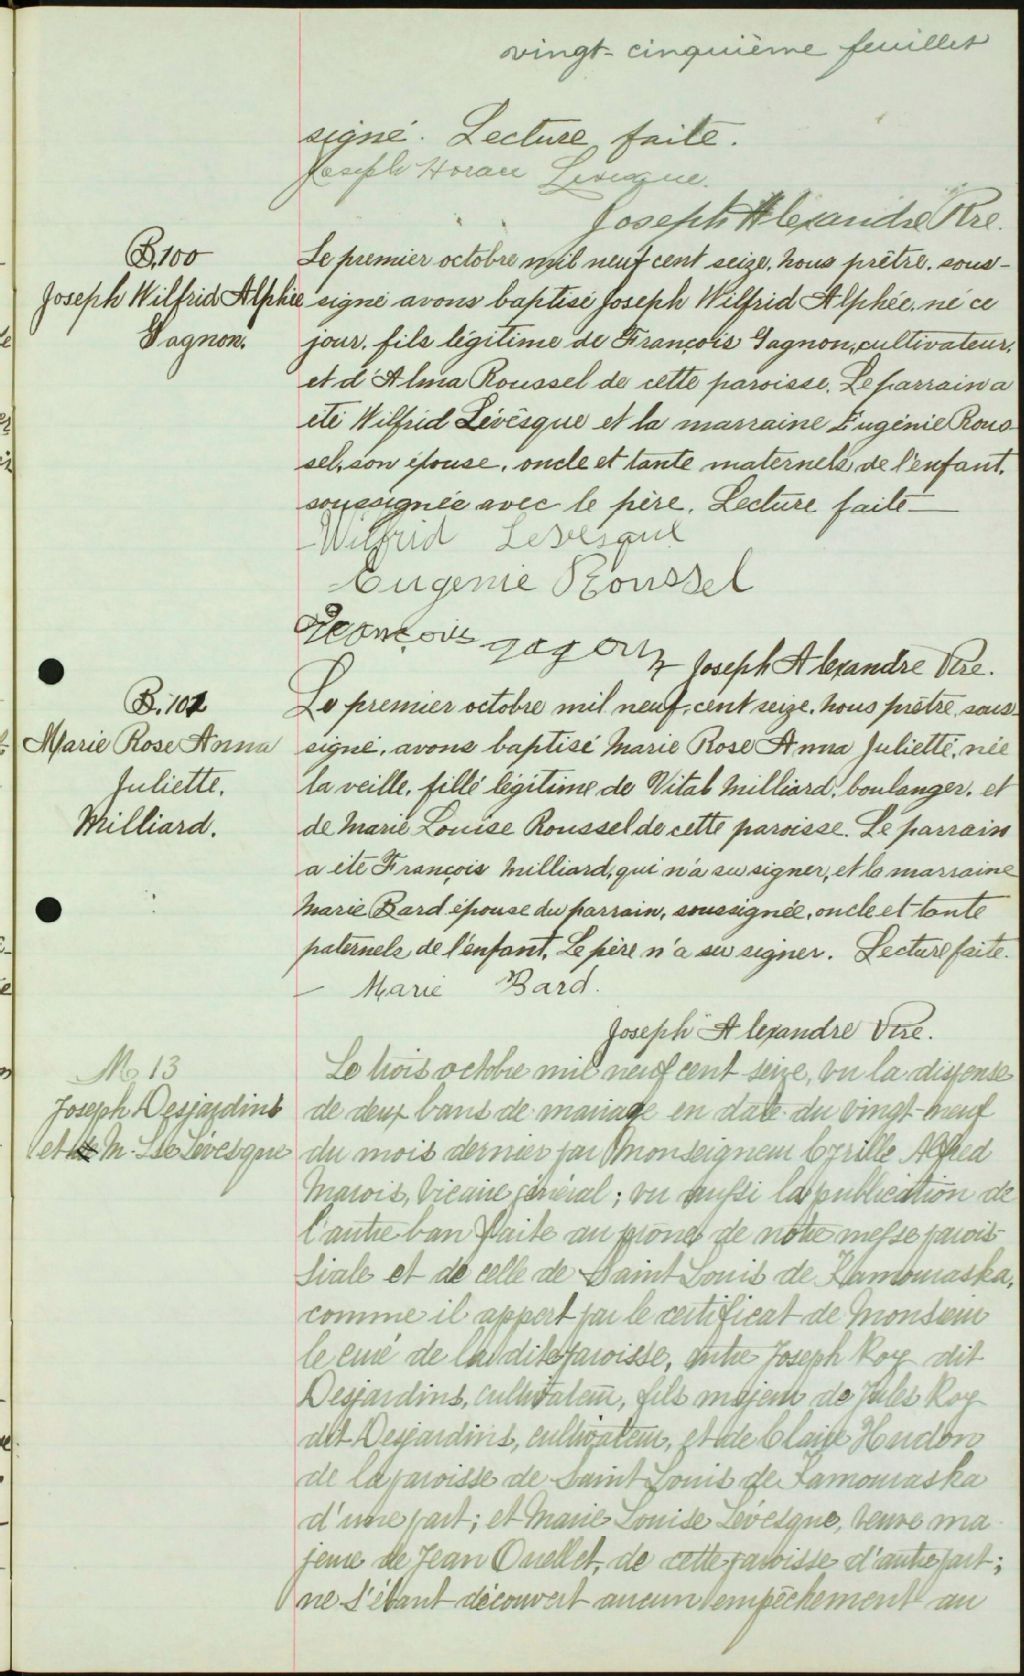 vingt-cinquième feuillet
signé. Lecture faite.
Joseph Horace Levesque.
Joseph Alexandre Ptre.
B.100
Joseph Wilfrid Alphée
Gagnon.
Le premier octobre mil neuf cent seize, nous prêtre, sous-
signé avons baptisé Joseph Wilfrid Alphée, né ce
jour, fils légitime de François Gagnon, cultivateur,
et d'Alma Roussel de cette paroisse. Le parrain a
été Wilfrid Lévêsque et la marraine Eugénie Rous-
sel, son épouse, oncle et tante maternels de l'enfant,
soussignée avec le père. Lecture faite—
-Wilfrid Levesque
-Eugenie Roussel
François gagon
Joseph Alexandre Ptre.
B.101
Marie Rose Anna
Juliette.
Milliard.
Le premier octobre mil neuf cent seize, nous prêtre, sous-
signé, avons baptisé Marie Rose Anna Juliette, née
la veille, fille légitime de Vital Milliard, boulanger, et
de Marie Louise Roussel de cette paroisse. Le parrain
a été François Milliard, qui n'a su signer, et la marraine
Marie Bard épouse du parrain, soussignée, oncle et tante
paternels de l'enfant. Le père n'a su signer. Lecture faite.
- Marie Bard.
Joseph Alexandre Ptre.
M 13
Joseph Desjardins
et M. Lse Lévesque
Le trois octobre mil neuf cent seize, vu la dispense
de deux bans de mariage en date du vingt-neuf
du mois dernier par Monseigneur Cyrille Alfred
Marois, Vicaire général; vu aussi la publication de
l'autre ban faite au prône de notre messe parois-
siale et de celle de Saint Louis de Kamouraska,
comme il appert par le certificat de Monsieur
le curé de la dite paroisse, entre Joseph Roy dit
Desjardins, cultivateur, fils majeur de Jules Roy
dit Desjardins, cultivateur, et de Claire Hudon
de la paroisse de Saint Louis de Kamouraska
d'une part; et Marie Louise Lévesque, veuve ma-
jeure de Jean Ouellet, de cette paroisse d'autre part;
ne s'étant découvert aucun empêchement au